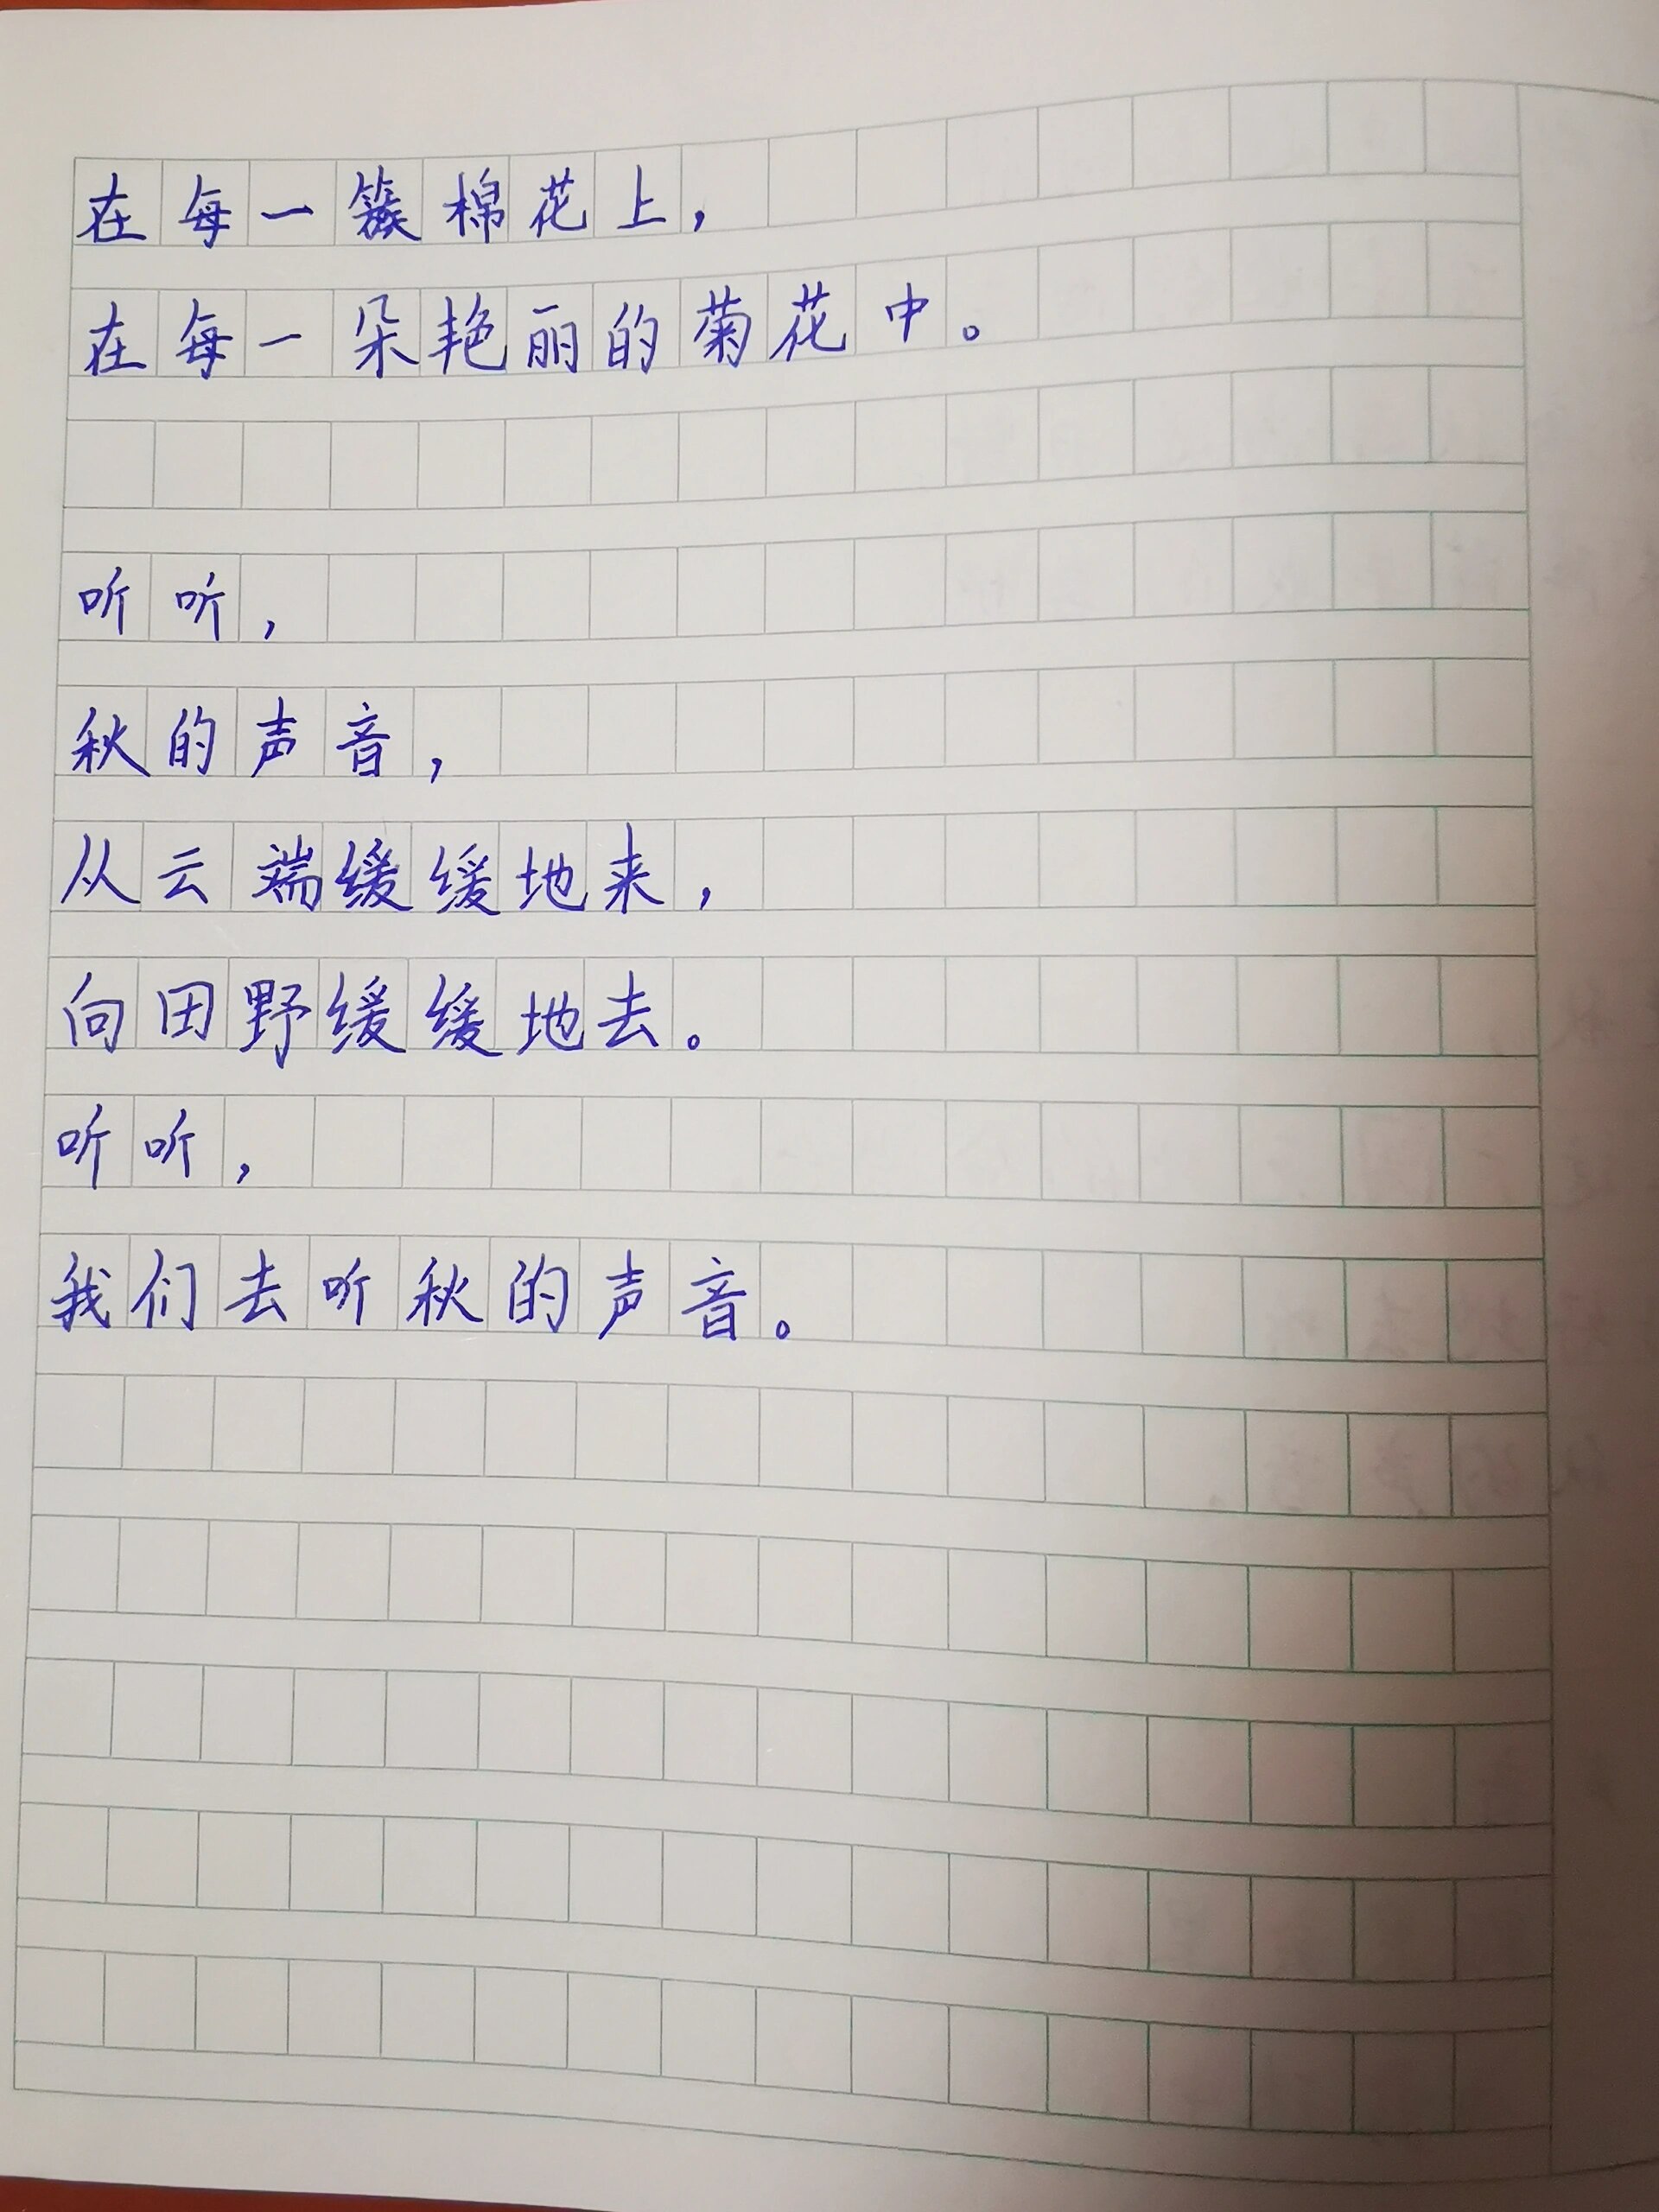 在每一簇棉花上，
在每一朵艳丽的菊花中。
听听，
秋的声音，
从云端缓缓地来，
向田野缓缓地去。
听听，
我们去听秋的声音。